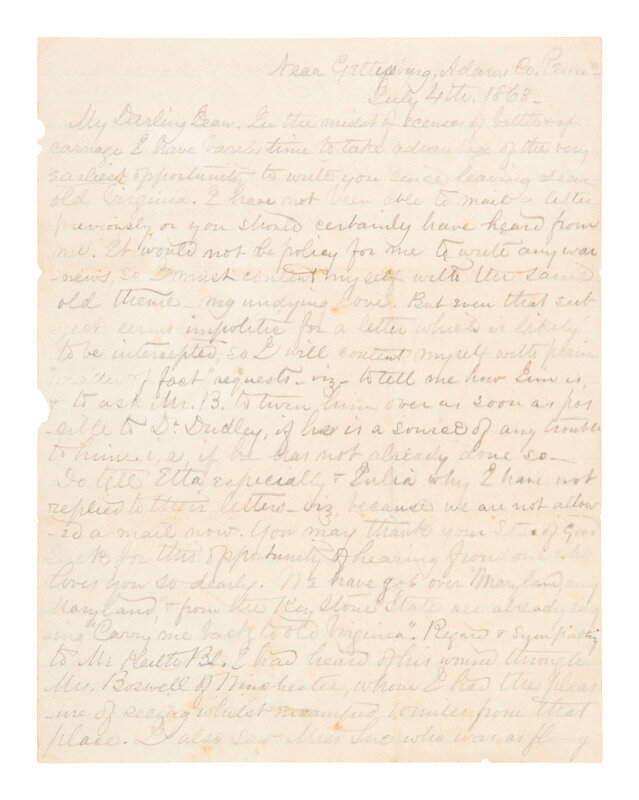 Near Gettysburg, Adams Co. Penna
July 4th. 1863-
My Darling Dear. In the midst of scenes of battle & of
carnage I have barely time to take advantage of the very
earliest opportunity to write you since leaving dear
old Virginia. I have not been able to mail a letter
previously or you should certainly have heard from
me. It would not be policy for me to write any war
-news, so I must content myself with the same
old theme - my undying love. But even that sub
-ject seems impolitic for a letter which is likely
to be intercepted, so I will content myself with plain
"matter of fact" requests - viz - to tell me how is,
& to ask Mr. B. to turn him over as soon as pos
-sible to Dr Dudley, if he is a source of any trouble
to him - i, e, if he has not already done so -
Do tell Etta, especially, & Julia why I have not
replied to their letters - viz, because we are not allow
-ed a mail now. You may thank your Star of Good
Luck for this opportunity of hearing from one who
loves you so dearly. We have got over "Maryland, my
Maryland", & from the Key Stone State are already sing
-ing "Carry me back to old Virginia". Regard & Sympathy
to Mr I had heard of his wound through
Mrs. Boswell of Winchester, whom I had the pleas
-ure of seeing whilst encamped, miles from that
place. I also saw Miss Sue who was as